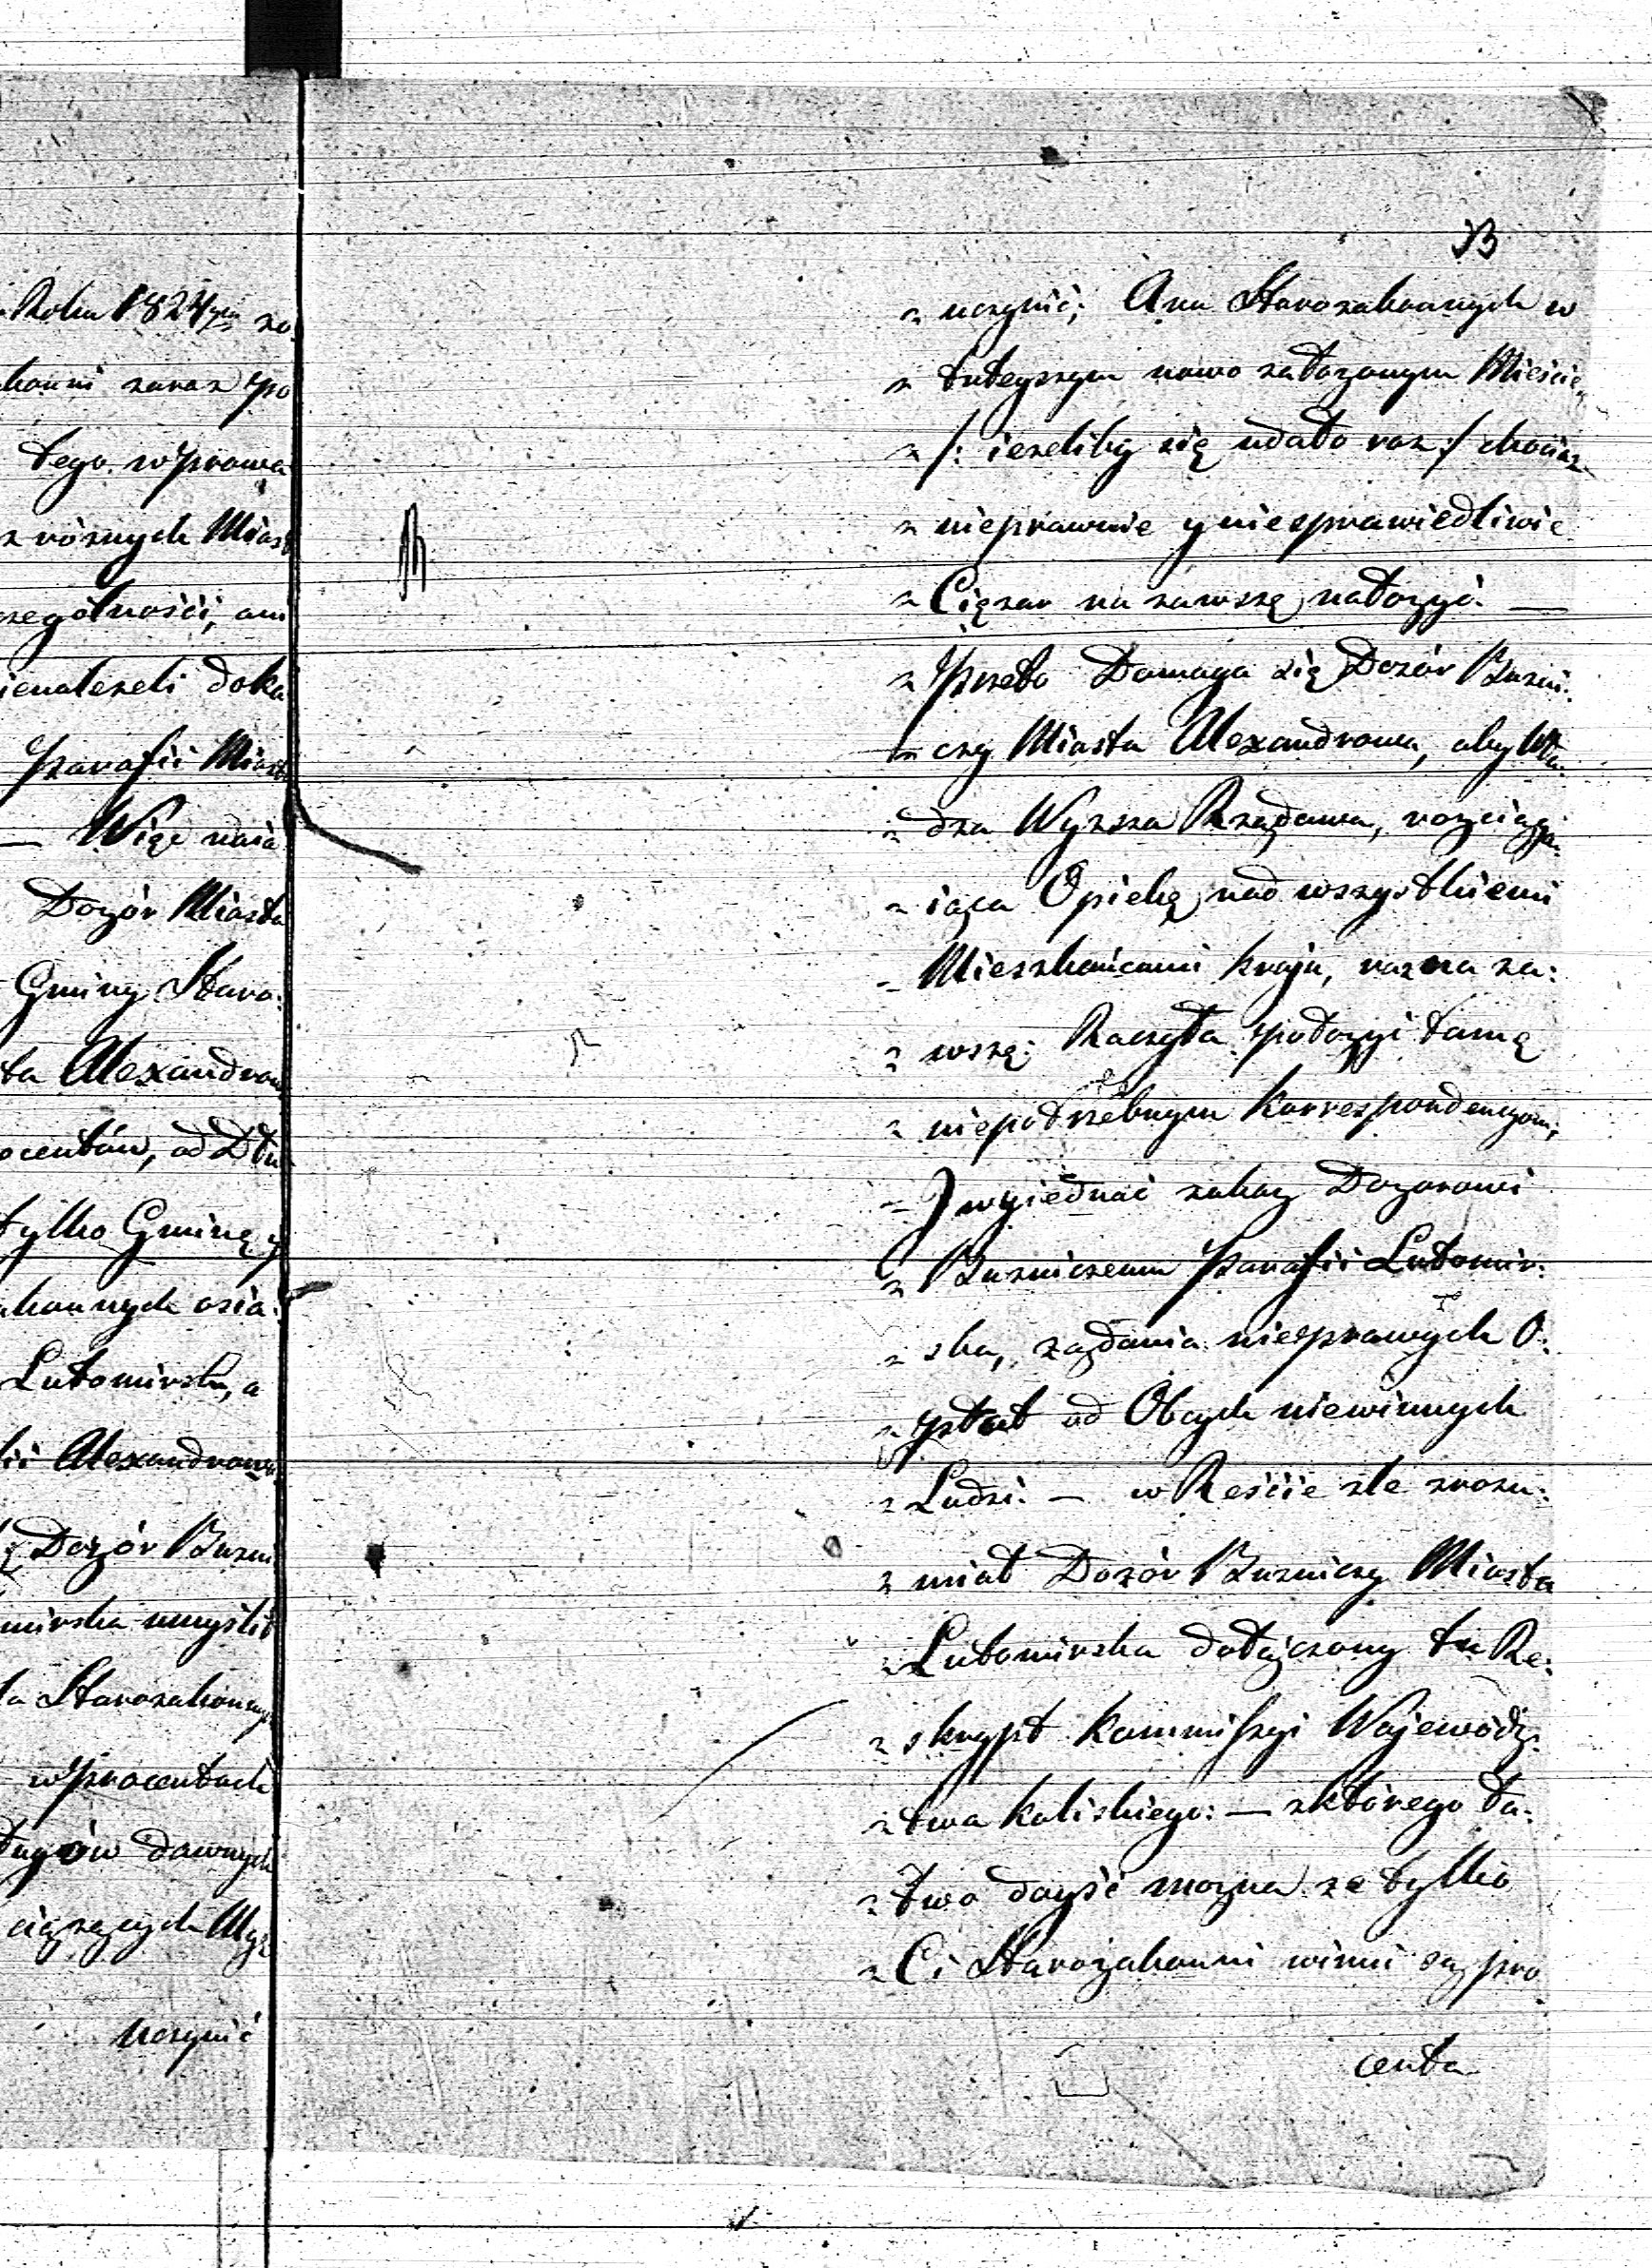 Roku 1824ym zo
konni zaraz po
tego wprowa
z róznych Miast
czególności, ani
ienależeli doka
Parafii Miasta
— Więc nasa
Dozór Miasta
Gminy Staro:
ta Alexandrowa
ocentów, od Dłu
tylko Gminę y
konnych osia:
Lutomirsku, a
lii Alexandrowa
Dozór Buzni
mirska umyślił
la Starozakonnych
w Procentach
ługów dawnych
ciążących Wyż
uczynić
33
uczynić; A na Starozakonnych w
tuteyszym nowo założonym Mieście,
/: ieżeliby się udało raz :/ chociaz
nieprawnie y niesprawiedliwie
Ciężar na zawszę nałożyć. —
Przeto Domaga się Dozór Buzni:
czy Miasta Alexandrowa, aby Wła:
dza Wyższa Rządowa, rozciąga:
iąca Opiekę nad wszystkiemi
Mieszkańcami kraju, raz na za:
wszę; Raczyła położyć tamę
niepotrzebnym Korrespondencyom,
J wyiednać zakaz Dozorowi
Buzniczemu Parafii Lutomir:
ska, żądania niesprawych O:
płat od Obcych niewinnych
Ludzi. — w Reście zle zrozu:
miał Dozór Buzniczy Miasta
Lutomirska dołączony tu Re:
skrypt Kommissyi Wojewódz:
twa Kaliskiego: — z którego ła:
two doyść mozna ze tylko
Ci Starozakonni winni są pro
centa